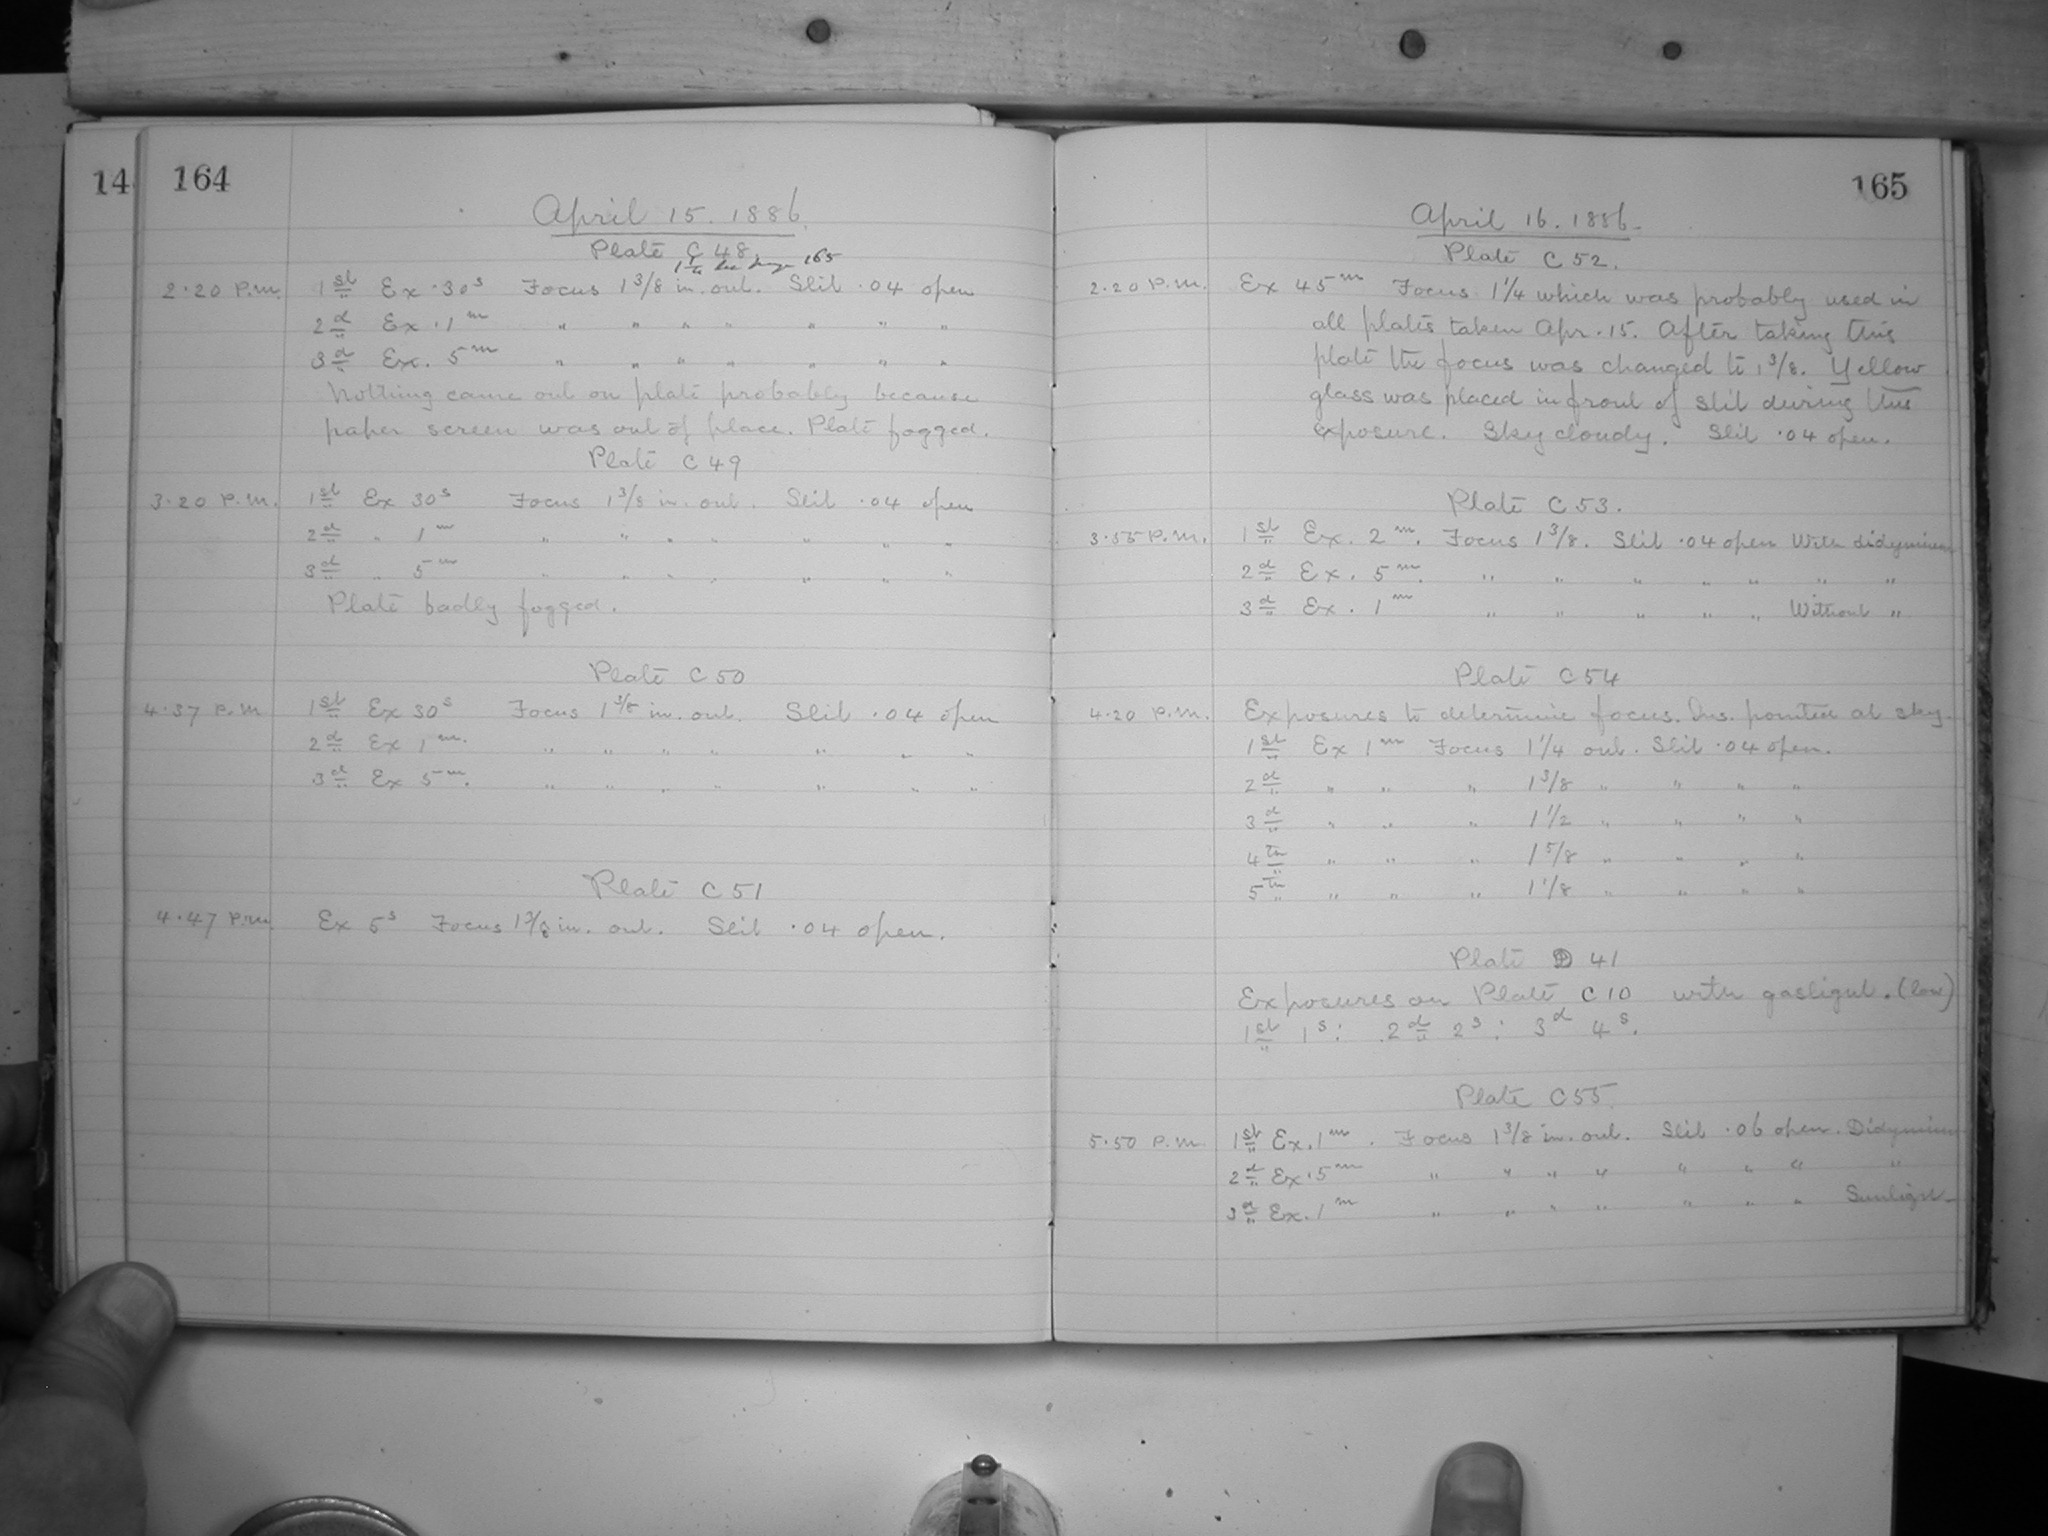 14
164
April 15. 1886.
Plate C 48.
1 1/4 See page 165
2.20 P.M. 1st Ex. 30s Focus 1 3/8 in. out. Slit .04 open
2d Ex. 1m " " " " " " "
3d Ex. 5m " " " " " " "
Nothing came out on plate probably because
paper screen was out of place. Plate fogged.
Plate C 49
3.20 P.M. 1st Ex 30s Focus 1 3/8 in. out. Slit .04 open
2d " 1m " " " " " " "
3d " 5m " " " " " " "
Plate badly fogged.
Plate C 50
4.37 P.M. 1st Ex 30s Focus 1 3/8 in. out. Slit .04 open
2d Ex 1m. " " " " " " "
3d Ex 5m. " " " " " " "
Plate C 51
4.47 P.M. Ex 5s Focus 1 3/8 in. out. Slit .04 open.
165
April 16. 1886.
Plate C 52.
2.20 P.M. Ex 45m Focus 1 1/4 which was probably used in
all plates taken Apr. 15. After taking this
plate the focus was changed to 1 3/8. Yellow
glass was placed in front of slit during this
exposure. Sky cloudy. Slit .04 open.
Plate C 53.
3.55 P.M. 1st Ex. 2m. Focus 1 3/8. Slit .04 open With didymium
2d Ex. 5m. " " " " " " "
3d Ex. 1m " " " " " Without "
Plate C 54
4.20 P.M. Exposures to determine focus. Ins. pointed at sky.
1st Ex 1m Focus 1 1/4 out. Slit .04 open.
2d " " " 1 3/8 " " " "
3d " " " 1 1/2 " " " "
4th " " " 1 5/8 " " " "
5th " " " 1 1/8 " " " "
Plate D 41
Exposures on Plate C 10 with gaslight. (low)
1st 1s: 2d 2s: 3d 4s.
Plate C 55
5.50 P.M. 1st Ex. 1m. Focus 1 3/8 in. out. Slit .06 open. Didymium
2d Ex. 5m " " " " " " " "
3d Ex. 1m " " " " " " " Sunlight